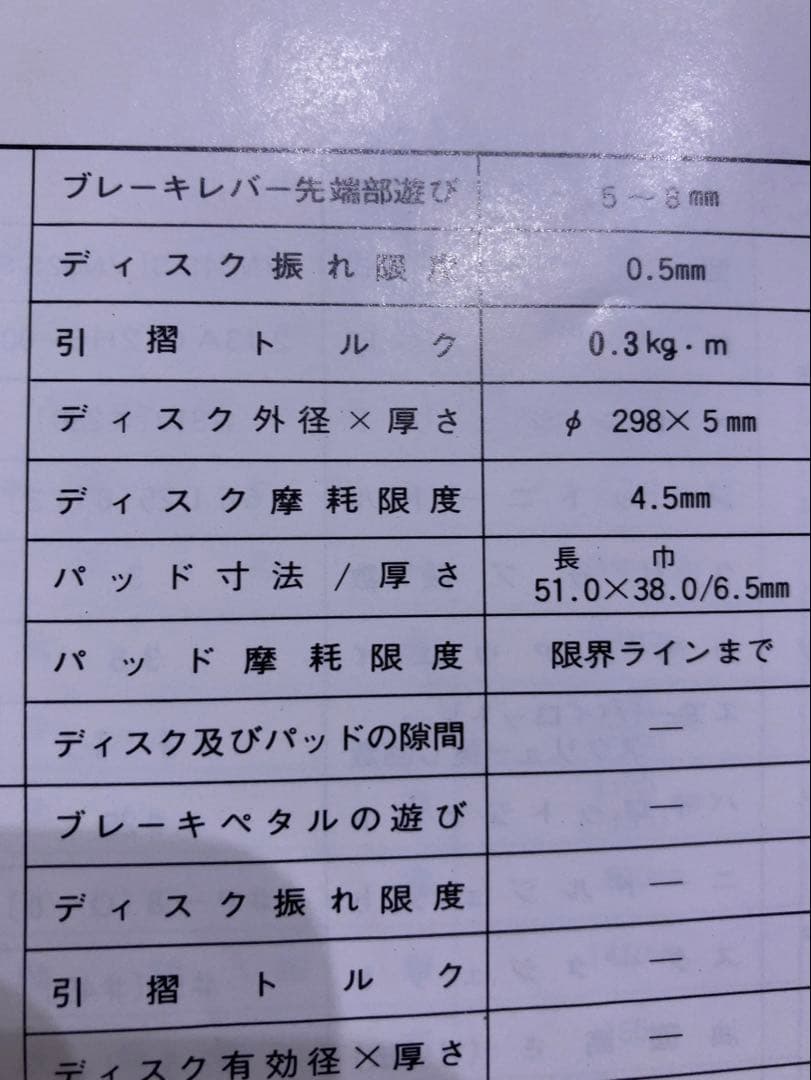 ブレーキレバー先端部遊び 5〜8mm
ディスク振れ限度 0.5mm
引摺トルク 0.3kg・m
ディスク外径×厚さ φ 298×5mm
ディスク摩耗限度 4.5mm
長 巾
パッド寸法/厚さ 51.0×38.0/6.5mm
パッド摩耗限度 限界ラインまで
ディスク及びパッドの隙間 —
ブレーキペタルの遊び —
ディスク振れ限度 —
引摺トルク —
ディスク有効径×厚さ —